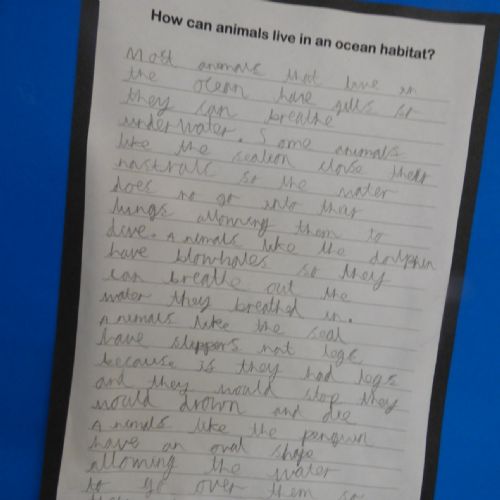 How can animals live in an ocean habitat?
Most animals that live in
the ocean have gills so
they can breathe
underwater. Some animals
like the sealion close their
nastrals so the water
does no go into thar
lungs allowing them to
dive. Animals like the dolphin
have blowholes so they
can breathe out the
water they breathed in.
Animals like the seal
have slippers not legs
because is they had legs
and they would stop they
would drown and die
Animals like the penguin
have an oval shape
allowing the water
to go over them so